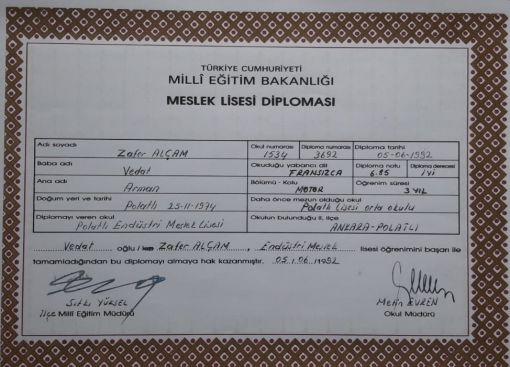 TÜRKİYE CUMHURİYETİ
MİLLÎ EĞİTİM BAKANLIĞI
MESLEK LİSESİ DİPLOMASI
Adı soyadı Zafer ALÇAM
Okul numarası 1534
Diploma numarası 3692
Diploma tarihi 05-06-1992
Baba adı Vedat
Okuduğu yabancı dil FRANSIZCA
Diploma notu 6.85
Diploma derecesi iyi
Ana adı Arman
Bölümü - Kolu MOTOR
Öğrenim süresi 3 YIL
Doğum yeri ve tarihi Polatlı 25-11-1974
Daha önce mezun olduğu okul Polatlı Lisesi orta okulu
Diplomayı veren okul Polatlı Endüstri Meslek Lisesi
Okulun bulunduğu il, ilçe ANKARA-POLATLI
Vedat oğlu / kızı Zafer ALÇAM, Endüstri Meslek lisesi öğrenimini başarı ile
tamamladığından bu diplomayı almaya hak kazanmıştır. 05/06/1992
Sıtkı YÜKSEL
İlçe Millî Eğitim Müdürü
Metin EVREN
Okul Müdürü